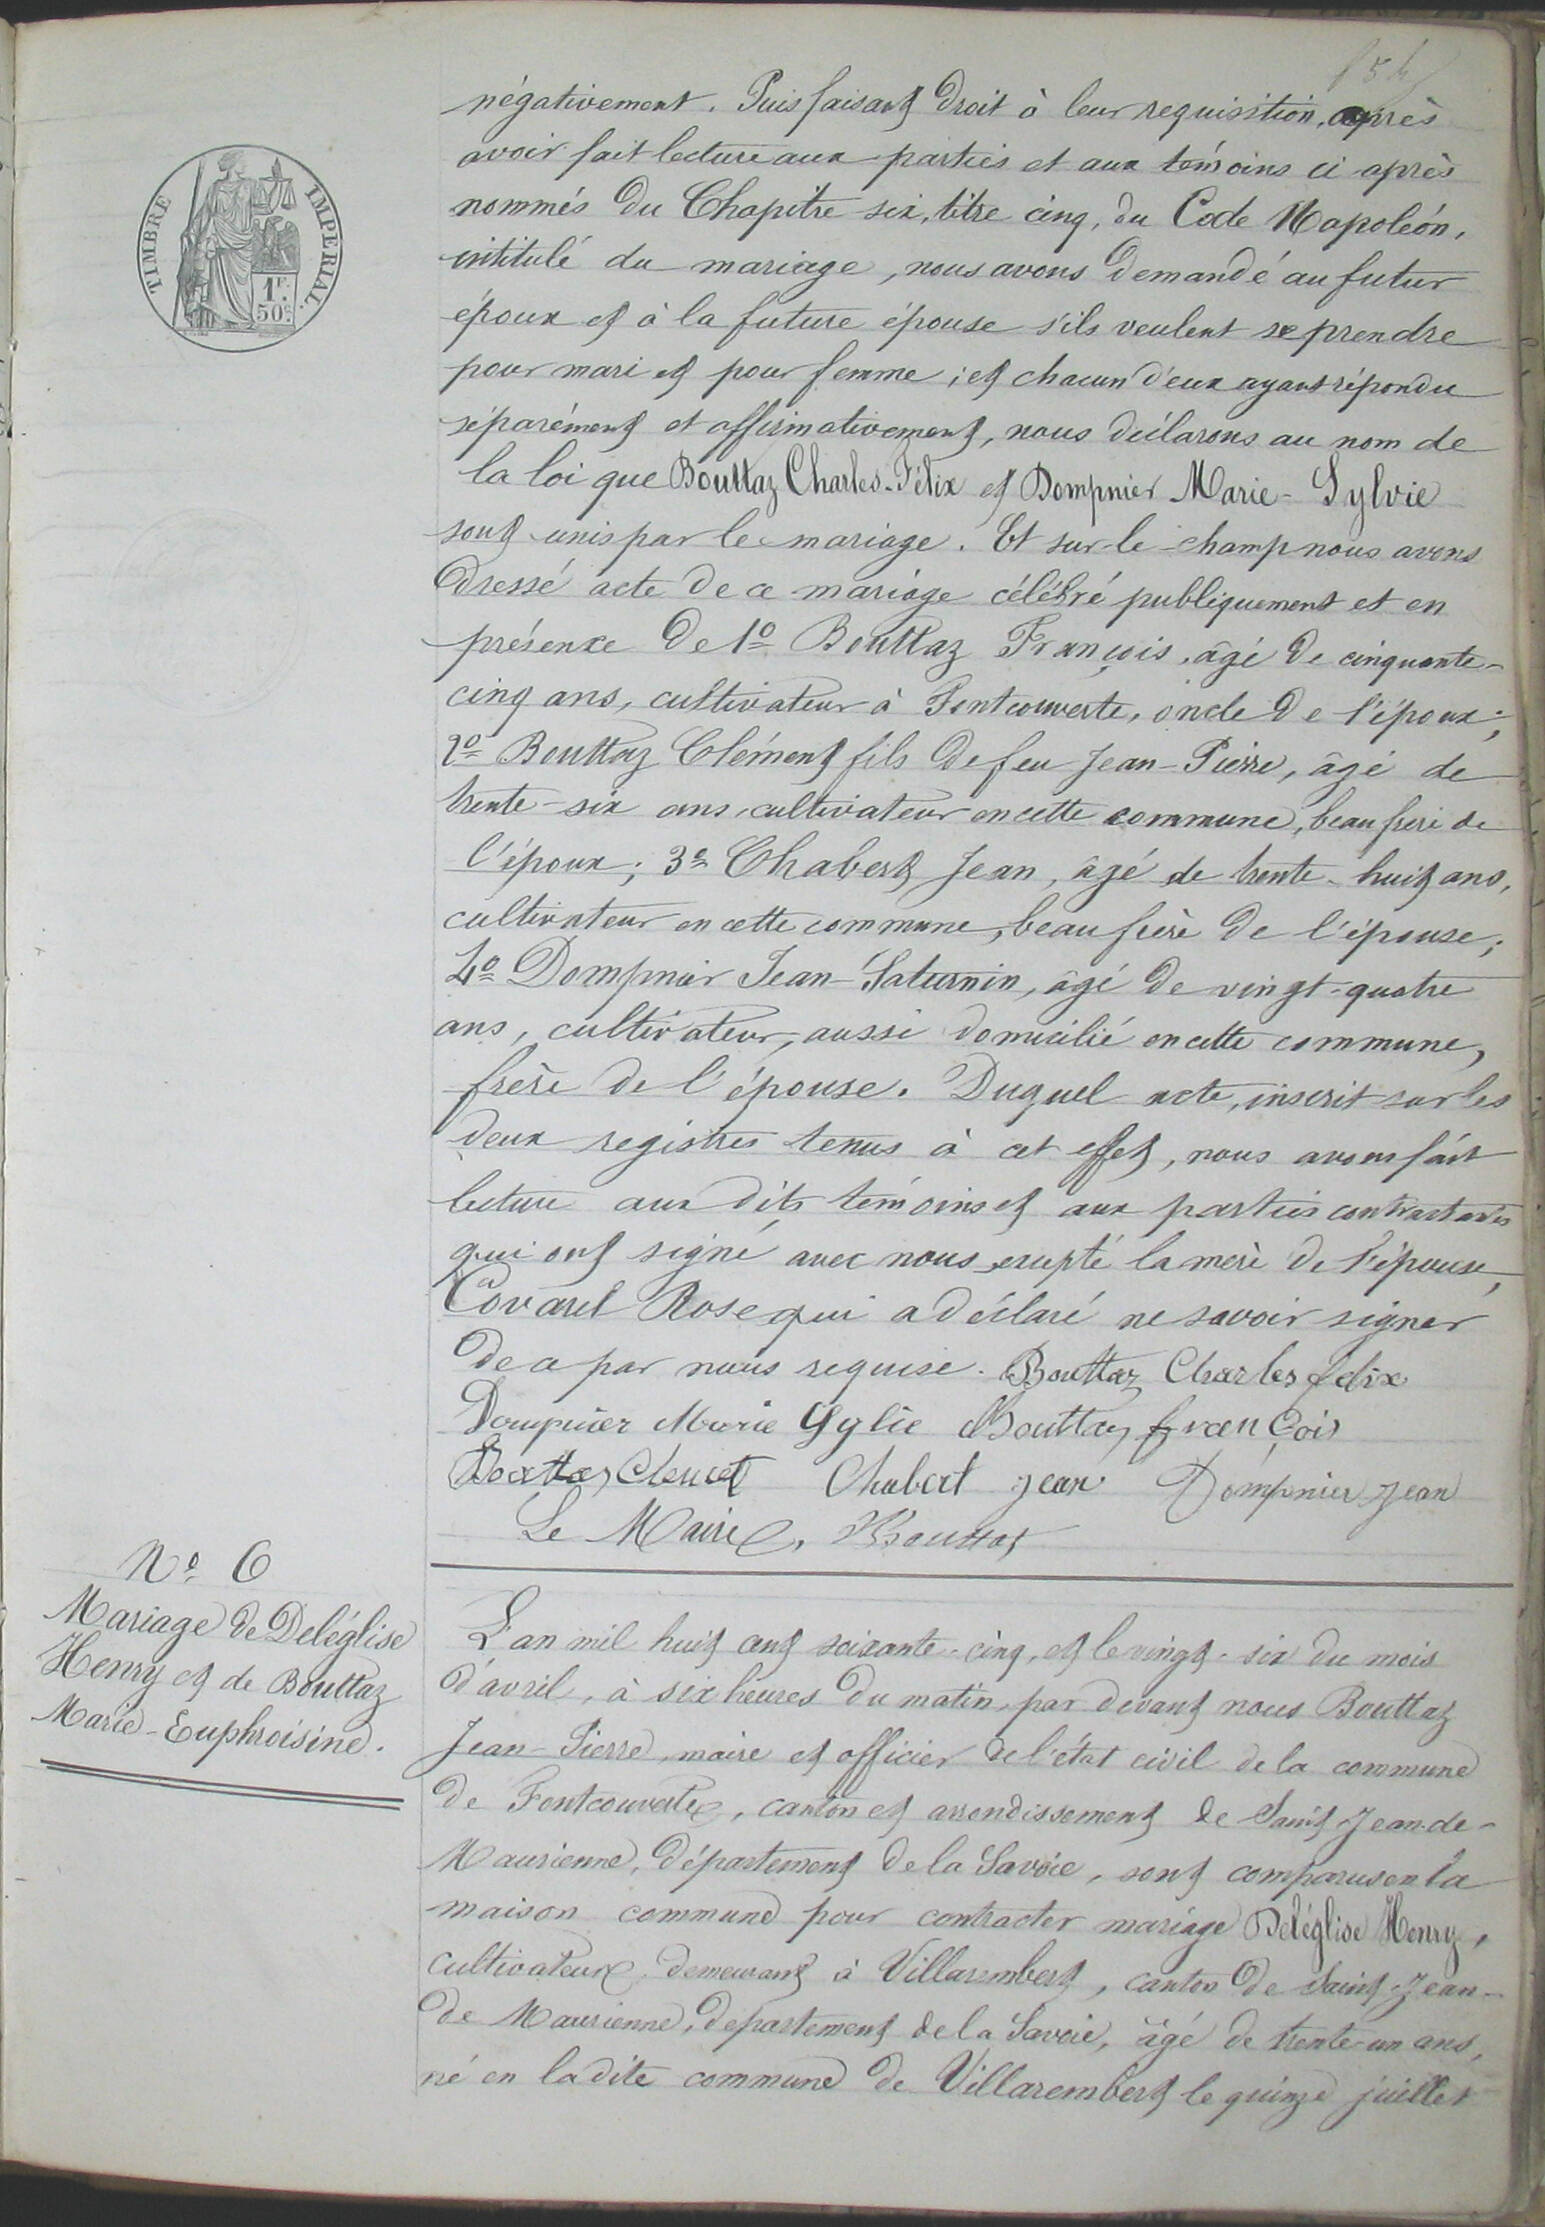 négativement. Puis faisant droit à leur requisition, après
avoir fait lecture aux parties et aux témoins ci après
nommés du Chapitre six, titre cinq, du Code Napoléon,
intitulé du mariage, nous avons demandé au futur
époux et à la future épouse s'ils veulent se prendre
pour mari et pour femme ; et chacun d'eux ayant répondu
séparément et affirmativement, nous déclarons au nom de
la loi que Bouttaz Charles-Félix et Dompnier Marie-Sylvie
sont unis par le mariage. Et sur-le-champ nous avons
dressé acte de ce mariage célébré publiquement et en
présence de 1º Bouttaz François, âgé de cinquante-
cinq ans, cultivateur à Fontcouverte, oncle de l'époux ;
2º Bouttaz Clément fils de feu Jean-Pierre, âgé de
trente-six ans, cultivateur en cette commune, beau frère de
l'époux ; 3º Chabert Jean, âgé de trente-huit ans,
cultivateur en cette commune, beau frère de l'épouse ;
4º Dompnier Jean-Saturnin, âgé de vingt-quatre
ans, cultivateur, aussi domicilié en cette commune,
frère de l'épouse. Duquel acte, inscrit sur les
deux registres tenus à cet effet, nous avons fait
lecture aux dits témoins et aux parties contractantes
qui ont signé avec nous, excepté la mère de l'épouse,
Covarel Rose qui a déclaré ne savoir signer
de ce par nous requise. Bouttaz Charles felix
Dompnier Marie Sylie Bouttaz françois
Bouttaz Clement Chabert jean Dompnier jean
Le Maire, Bouttaz
TIMBRE IMPERIAL.
1F.
50c.
Nº 6
Mariage de Deléglise
Henry et de Bouttaz
Marie-Euphroisine.
L'an mil huit cent soixante-cinq, et le vingt-six du mois
d'avril, à six heures du matin, par devant nous Bouttaz
Jean-Pierre, maire et officier de l'état civil de la commune
de Fontcouverte, canton et arrondissement de Saint-Jean-de-
Maurienne, département de la Savoie, sont comparus en la
maison commune pour contracter mariage Deléglise Henry,
cultivateur, demeurant à Villarembert, canton de Saint-Jean-
de Maurienne, departement de la Savoie, âgé de trente-un ans,
né en la dite commune de Villarembert le quinze juillet